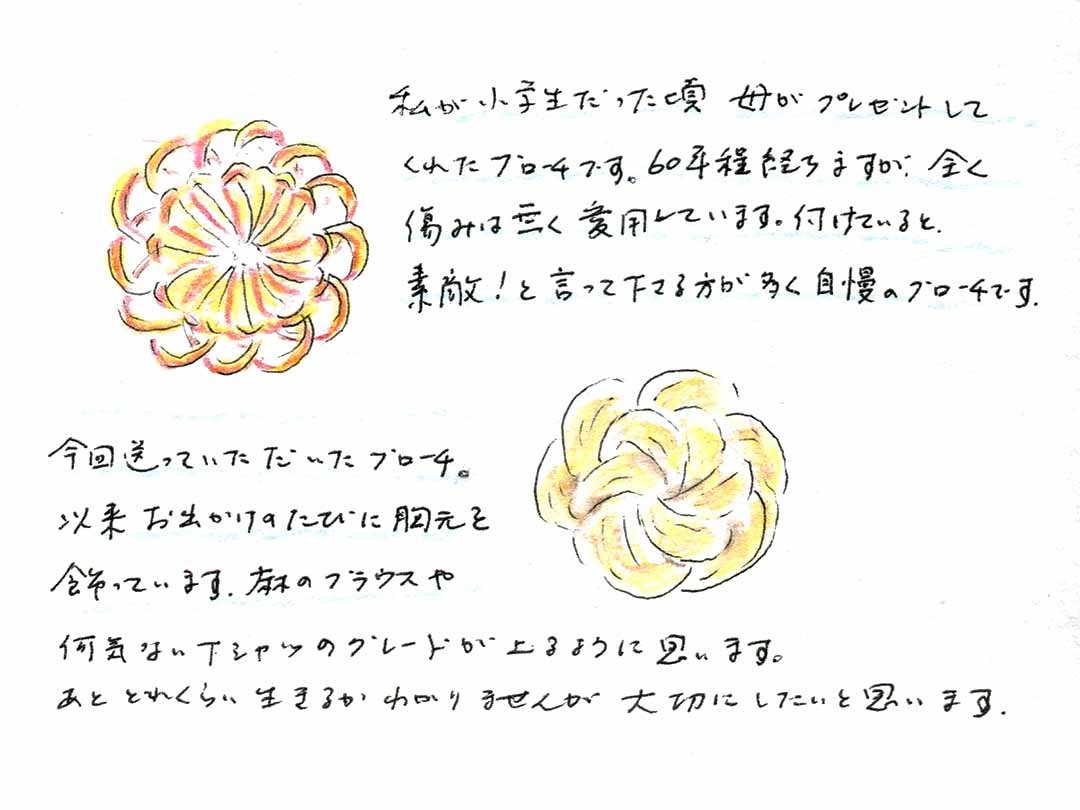 私が小学生だった頃 母がプレゼントして
くれたブローチです。60年程経ちますが、全く
傷みは無く愛用しています。付けていると、
素敵！と言って下さる方が多く自慢のブローチです.
今回送っていただいたブローチ。
以来 お出かけのたびに胸元を
飾っています.麻のブラウスや
何気ないTシャツのグレードが上るように思います。
あと どれくらい生きるかわかりませんが 大切にしたいと思います.